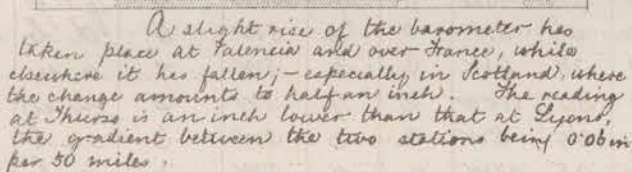 A slight rise of the barometer has
taken place at Valencia and over France, while
elsewhere it has fallen; - especially in Scotland, where
the change amounts to half an inch. The reading
at Thurso is an inch lower than that at Lyons,
the gradient between the two stations being 0.06 in
per 50 miles.